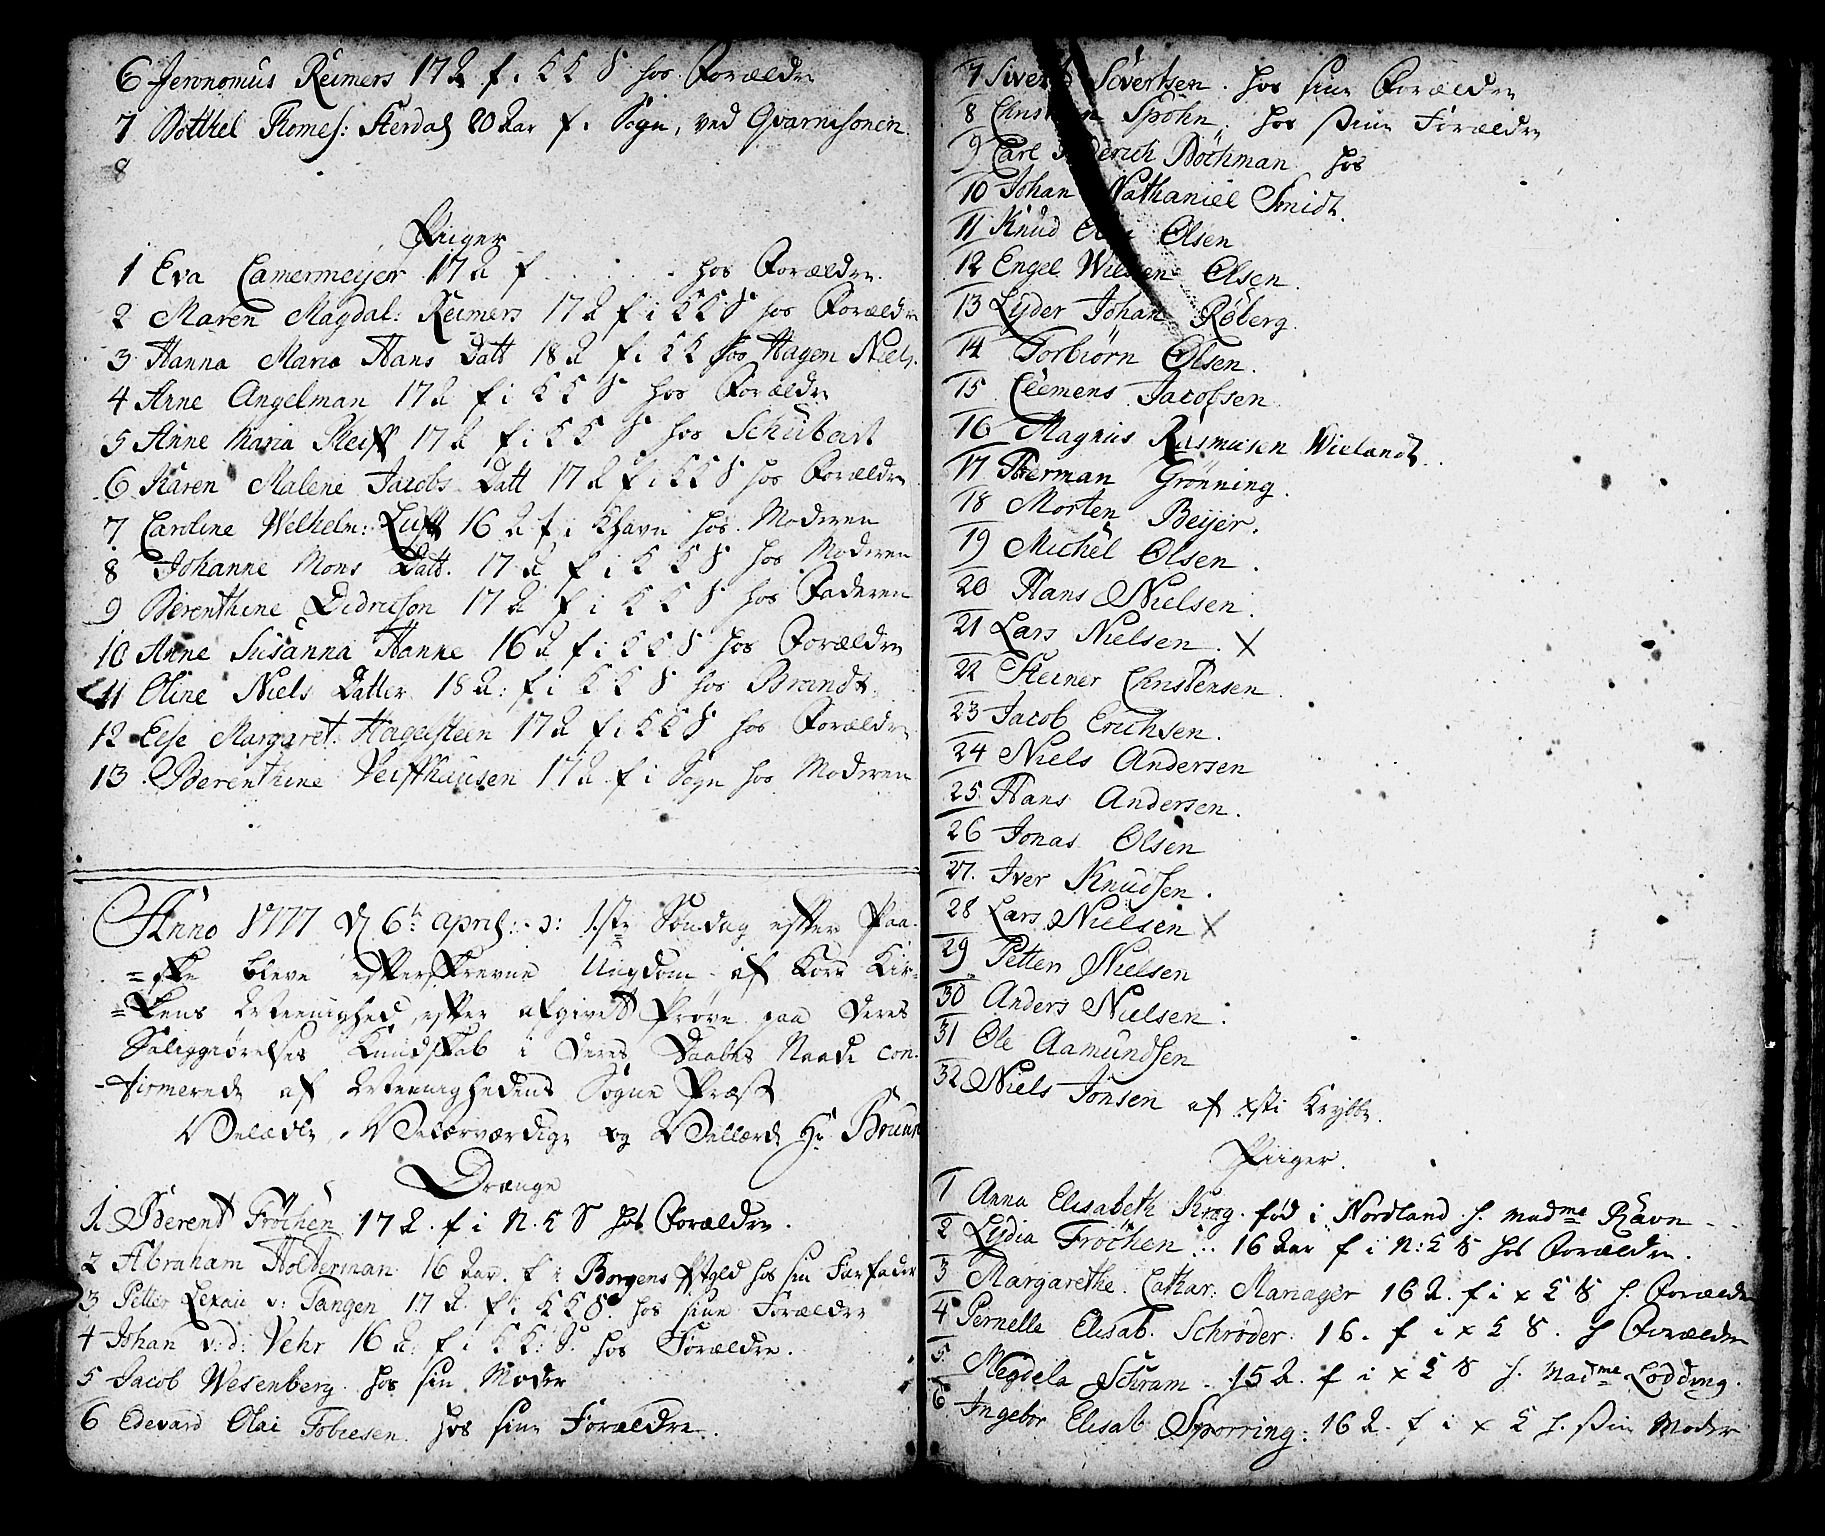 6 Jeronomus Reimers 17 A f i K K S hos Forældre
7 Botthel Thomes: Sterdal 20 Aar f. i Sogn, ved Gvarnisonen
8
Piiger
1 Eva Camermeijer 17 A f . . . . hos Forældre
2 Maren Magdal: Reimers 17 A f i K K S hos Forældre
3 Hanna Maria Hans Datt 18 A f i K K hos Hagen Niels.
4 Anne Angelman 17 A f i K K S hos Forældre
5 Anne Maria 17 A f i K K S hos Schubart
6 Karen Malene Jacobs Datt 17 A f i K K S hos Forældre
7 Caroline Welhelm: 16 A f i Khavn hos Moderen
8 Johanne Mons Datt. 17 A f i K K S hos Moderen
9 Berenthine Didricson 17 A f i K K S hos Faderen
10 Anne Susanna Hanne 16 A f i K K S hos Forældre
11 Oline Niels Datter 18 A: f i K K S hos Brandt
12 Else Margaret: Hagelsteen 17 A f i K K S hos Forældre
13 Berenthine Veisthausen 17 A f i Sogn hos Moderen
Anno 1777 d 6te april: 1ste Søndag efter Paa-
=ske bleve efterskrevne Ungdom af Kors Kir-
=kens Meenighed, efter afgivet Prøve paa Deres
Saliggiørelses Kundskab i Deres Daabes Naade con-
-firmerede af Meenighedens Sogne Præst
Velædle, Velærværdige og Vellærde Hr Bruun
Drænge
1 Berent Fröchen 17 A. f i N. K S hos Forældre.
2 Abraham Holterman 16 Aar. f i Borgens hos sin Farfader
3 Petter v: Tangen 17 A. f i K K S. hos sine Forældre
4 Johan v: d: Vehr 16 A: f i K K: S. hos Forældre.
5 Jacob Wesenberg. hos sin Moder
6 Edevard Olai Tobiesen. hos sine Forældre.
7 Sivert Sivertsen. hos sine Forældre
8 Spöhn. hos sine Forældre
9 Carl Böchman hos
10 Johan Nathaniel Smidt.
11 Knud Olsen
12 Engel Olsen.
13 Lyder Johan Röberg.
14 Torbiørn Olsen.
15 Clemens Jacobsen
16 Magnus Rasmusen Wielandt.
17 Herman Grønning.
18 Morten Beijer.
19 Michel Olsen.
20 Hans Nielsen.
21 Lars Nielsen. X
22 Steiner Christensen.
23 Jacob Erichsen.
24 Niels Andersen
25 Hans Andersen.
26 Jonas Olsen
27. Iver Knudsen.
28 Lars Nielsen X
29 Petter Nielsen
30 Anders Nielsen.
31 Ole Aamundsen
32 Niels Jonsen af xsti Krybbe.
Piiger.
1 Anna Elisabeth Krog. fød i Nordland h. madme Ravn
2 Lydia Fröchen .. 16 Aar f i N: K S hos Forældre.
3 Margarethe. Cathar: Mariager 16 A. f i x K S h. Forældre
4 Pernelle Elisab. Schrøder. 16. f i x K S. h Forældre
5. Megdela Schram. 15 A. f i x K S h. Madme Lodding.
6 Ingebor Elisab Sporring: 16 A. f i x K h. sin Moder